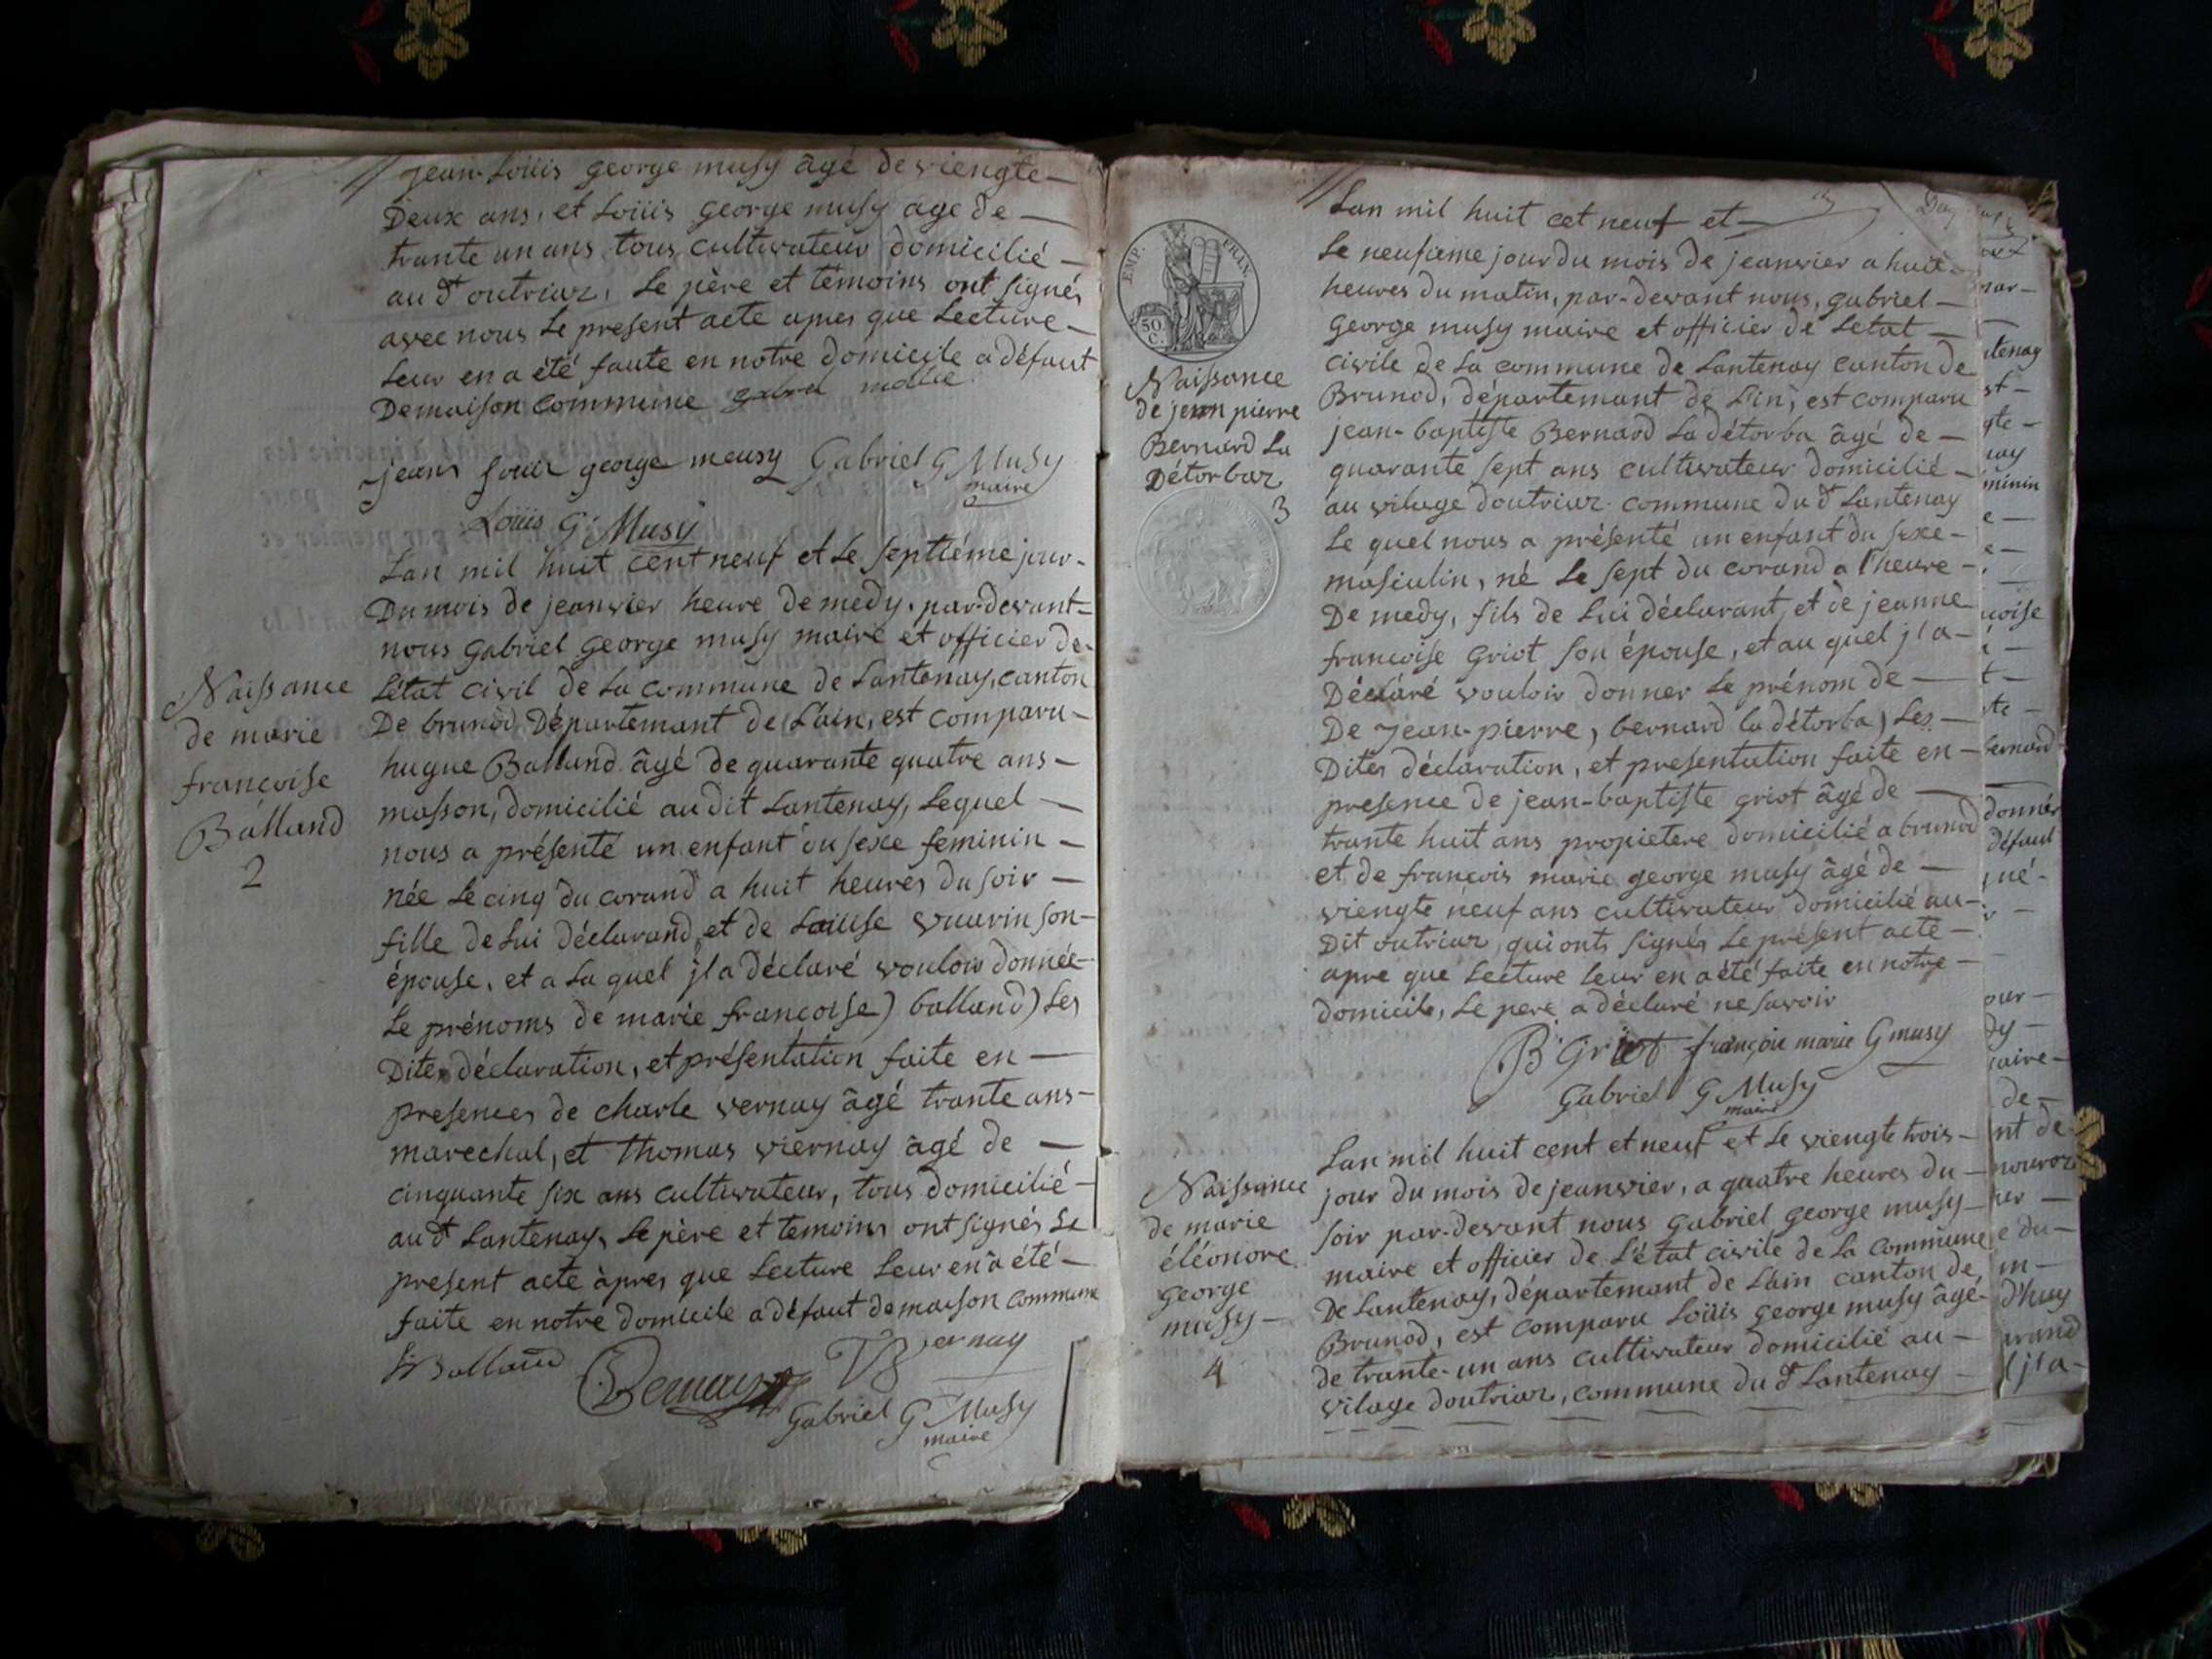 jean-Loüis george musy âgé de viengte-
Deux ans, et Loüis george musy age de-
trante un ans tous cultivateur domicilié-
au dt outriaz, Le père et témoins ont signés
avec nous Le present acte apres que Lecture-
Leur en a été faute en notre domicile a défaut
De maison commune
jean louiz george meusy Gabriel G Musy
maire
Loüis G: Musy
Lan mil huit cent neuf et Le septiéme jour-
Du mois de jeanvier heure De medy, par-devant-
nous gabriel george musy maire et officier de-
L'état civil de La commune de Lantenay, canton
De brunod Département de L'ain, est comparu-
hugue Balland âgé De quarante quatre ans-
masson, domicilié au dit Lantenay, Lequel-
nous a présenté un enfant du sexe feminin-
née Le cinq du corand a huit heures du soir-
fille de Lui déclarand, et de Laüise vuarin son-
épouse, et a La quel jl a déclaré vouloir donnée-
Le prénoms de marie françoise) balland) Les
Dites déclaration, et présentation faite en-
presences de charle vernay âgé trante ans-
marechal, et thomas viernay âgé de-
cinquante six ans cultivateur, tous domicilié-
au dt Lantenay, Le père et temoins ont signés Le
present acte àpres que Lecture Leur en a été-
faite en notre domicile a défaut de maison commune
Balland vernay
Gabriel G Musy
maire
Naissance
de marie
françoise
Balland
2
EMP. FRAN.
50
C.
Naissance
de jean pierre
Bernard La
Détorbaz
3
Lan mil huit cet neuf et-
Le neufieme jour du mois de jeanvier a huit-
heures du matin, par-devant nous, gabriel-
george musy maire et officier de Letat-
civile de La commune de Lantenay canton de
Brunod, département de L'in, est comparu
jean-baptiste Bernard La détorba âgé de-
quarante sept ans cultivateur domicilié-
au vilage doutriaz commune du dt Lantenay
Le quel nous a présenté un enfant du sexe-
masculin, né Le sept du corand a l'heure-
De medy, fils de Lui déclarant, et de jeanne
françoise griot son épouse, et au quel jl a-
Déclaré vouloir donner Le prénom de-
De jean-pierre, bernard la détorba) Les-
Dites déclaration, et presentation faite en-
presence de jean-baptiste griot âgé de-
trante huit ans propietere domicilié a brunod
et de françois marie george musy âgé de-
viengte neuf ans cultivateur domicilié au-
Dit outriaz, qui onts signés Le présent acte-
apre que Lecture leur en a été faite en notre-
domicile, Le pere a déclaré ne savoir
B Griot françoie marie G musy
Gabriel G Musy
maire
Naissance
de marie
éléonore
george
musy-
4
Lan mil huit cent et neuf et Le viengte trois-
jour du mois de jeanvier, a quatre heures du-
soir par-devant nous gabriel george musy-
maire et officier de L'état civile de La commune
De Lantenay, département de Lain canton de
Brunod, est comparu Loüis george musy âgé-
de trante-un ans cultivateur domicilié au-
vilage doutriaz, commune du dt Lantenay-